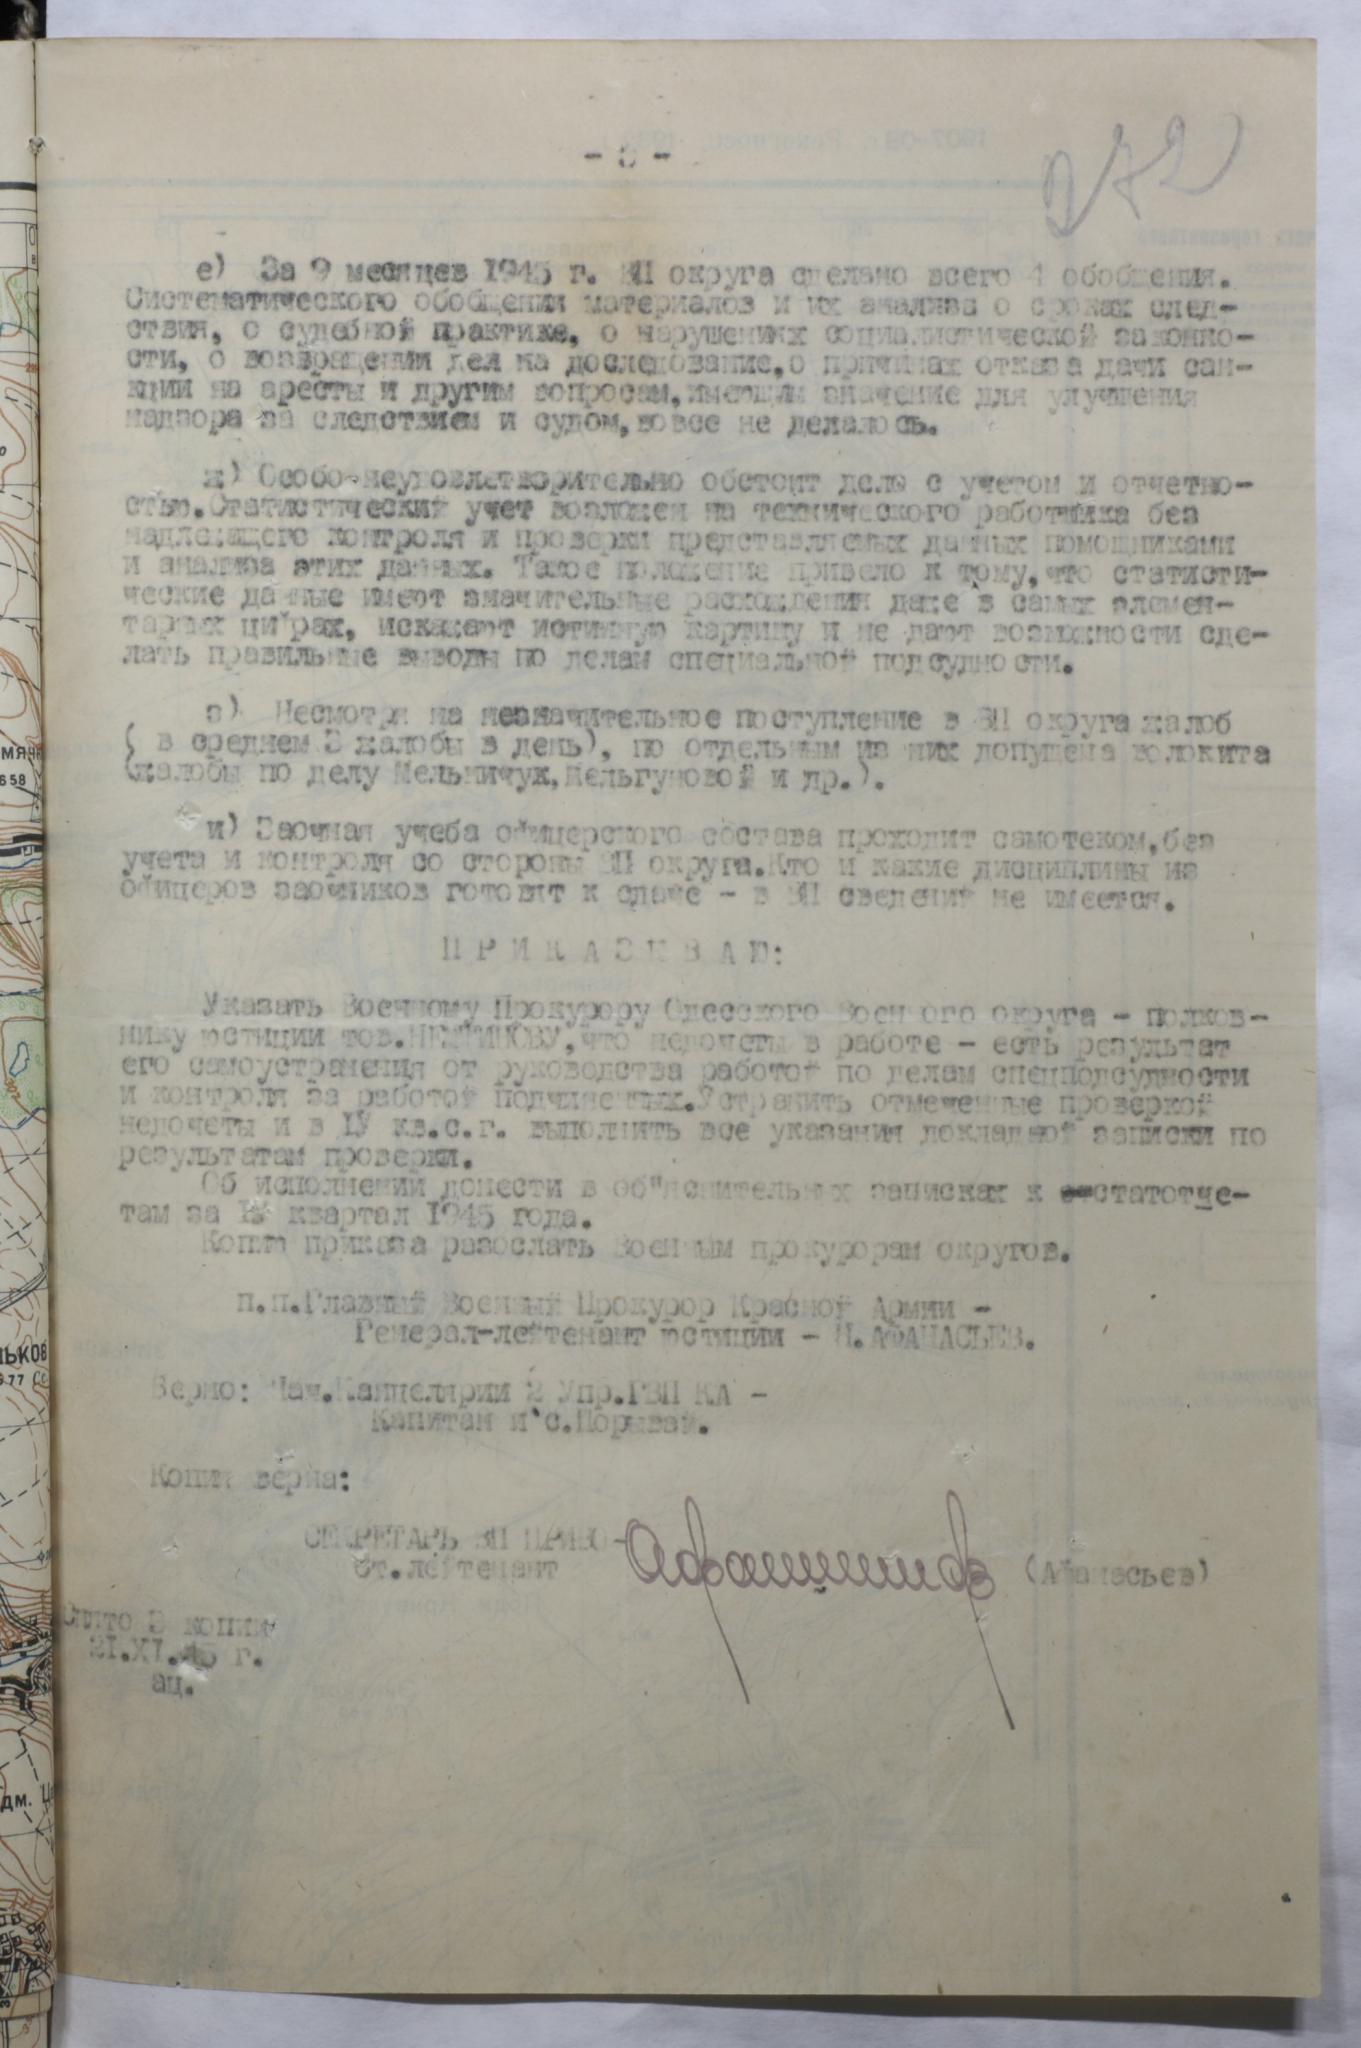 272
е) За 9 месяцев 1945 г. ВП округа сделано всего 4 обобщения.
Систематического обобщения материалов и их анализа о сроках след-
ствия, о судебной практике, о нарушениях социалистической законно-
сти, о возвращении дел на доследование, о причинах отказа дачи сан-
кции на аресты и другим вопросам, имеющим значение для улучшения
надзора за следствием и судом, вовсе не делалось.
ж) Особо-неудовлетворительно обстоит дело с учетом и отчетно-
стью. Статистический учет возложен на технического работника без
надлежащего контроля и проверки представляемых данных помощниками
и анализа этих данных. Такое положение привело к тому, что статисти-
ческие данные имеют значительные расхождения даже в самых элемен-
тарных цифрах, искажают истинную картину и не дают возможности сде-
лать правильные выводы по делам специальной подсудности.
з) Несмотря на незначительное поступление в ВП округа жалоб
( в среднем 3 жалобы в день), по отдельным из них допущена волокита
(жалобы по делу Мельничук, и др.).
и) Заочная учеба офицерского состава проходит самотеком, без
учета и контроля со стороны ВП округа. Кто и какие дисциплины из
офицеров заочников готовят к сдаче - в ВП сведений не имеется.
П Р И К А З Ы В А Ю:
Указать Военному Прокурору Одесского Военного округа - полков-
нику юстиции тов. что недочеты в работе - есть результат
его самоустранения от руководства работой по делам спецподсудности
и контроля за работой подчиненных. Устранить отмеченные проверкой
недочеты и в IУ кв.с.г. выполнить все указания докладной записки по
результатам проверки.
Об исполнений донести в об"яснительных записках к статотче-
там за IУ квартал 1945 года.
Копию приказа разослать Военным прокурорам округов.
п.п.Главный Военный Прокурор Красной Армии -
Генерал-лейтенант юстиции - Н.АФАНАСЬЕВ.
Верно: Нач.Канцелярии 2 Упр.ГВП КА -
Капитан и/с.Порывай.
Копия верна:
СЕКРЕТАРЬ ВП ПРИВО -
Ст.лейтенант
(Афанасьев)
3 копии
21.XI.45 г.
ац.